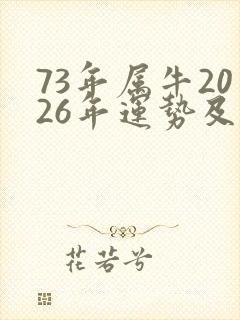 73年属牛20
26年運势及
花若兮